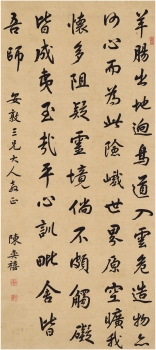 羊腸出地迥鳥道入雲危造物亦
何心而為此險巇世界原空曠我
懷多阻疑靈境倘不頗觸礙
皆成夷至哉平心訓毗舍皆
吾師
安敦三兄大人教正
陳奕禧